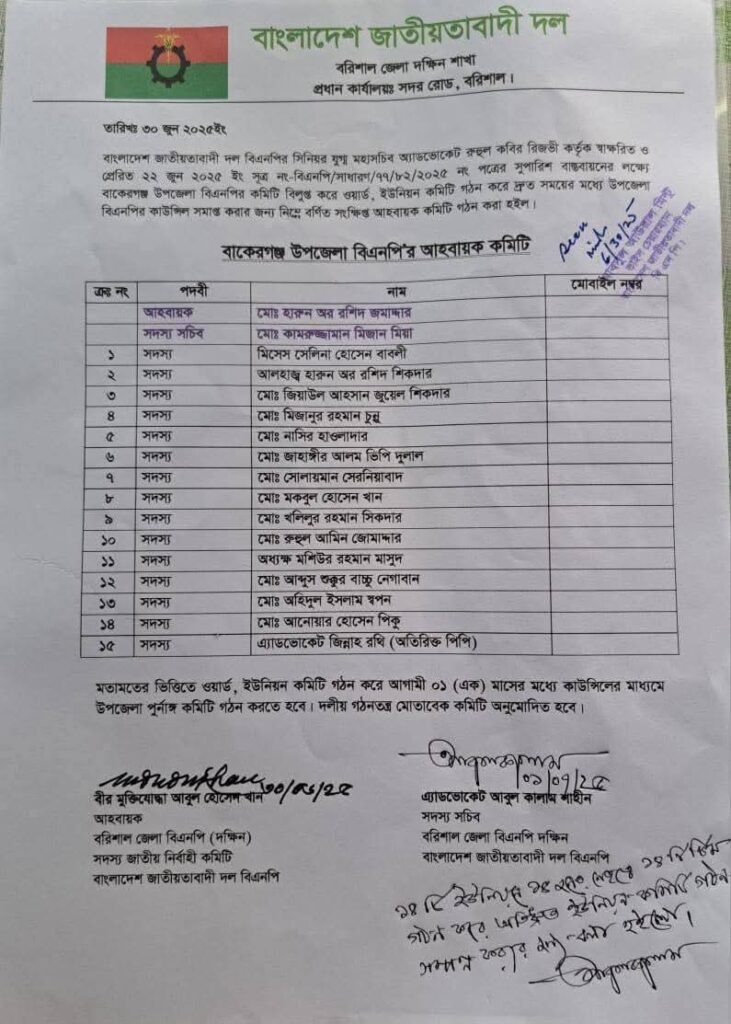 বাংলাদেশ জাতীয়তাবাদী দল
বরিশাল জেলা দক্ষিন শাখা
প্রধান কার্যালয়ঃ সদর রোড, বরিশাল।
তারিখঃ ৩০ জুন ২০২৫ইং
বাংলাদেশ জাতীয়তাবাদী দল বিএনপির সিনিয়র যুগ্ম মহাসচিব অ্যাডভোকেট রুহুল কবির রিজভী কর্তৃক স্বাক্ষরিত ও
প্রেরিত ২২ জুন ২০২৫ ইং সূত্র নং-বিএনপি/সাধারণ/৭৭/৮২/২০২৫ নং পত্রের সুপারিশ বাস্তবায়নের লক্ষ্যে
বাকেরগঞ্জ উপজেলা বিএনপির কমিটি বিলুপ্ত করে ওয়ার্ড, ইউনিয়ন কমিটি গঠন করে দ্রুত সময়ের মধ্যে উপজেলা
বিএনপির কাউন্সিল সমাপ্ত করার জন্য নিম্নে বর্ণিত সংক্ষিপ্ত আহবায়ক কমিটি গঠন করা হইল।
Seen
6/30/25
বাকেরগঞ্জ উপজেলা বিএনপি'র আহবায়ক কমিটি
ক্রঃ নং পদবী নাম মোবাইল নম্বর
আহবায়ক মোঃ হারুন অর রশিদ জমাদ্দার
সদস্য সচিব মোঃ কামরুজ্জামান মিজান মিয়া
১ সদস্য মিসেস সেলিনা হোসেন বাবলী
২ সদস্য আলহাজ্ব হারুন অর রশিদ শিকদার
৩ সদস্য মোঃ জিয়াউল আহসান জুয়েল শিকদার
৪ সদস্য মোঃ মিজানুর রহমান চুন্নু
৫ সদস্য মোঃ নাসির হাওলাদার
৬ সদস্য মোঃ জাহাঙ্গীর আলম ভিপি দুলাল
৭ সদস্য মোঃ সোলায়মান সেরনিয়াবাদ
৮ সদস্য মোঃ মকবুল হোসেন খান
৯ সদস্য মোঃ খলিলুর রহমান সিকদার
১০ সদস্য মোঃ রুহুল আমিন জোমাদ্দার
১১ সদস্য অধ্যক্ষ মশিউর রহমান মাসুদ
১২ সদস্য মোঃ আব্দুস শুকুর বাচ্চু নেগাবান
১৩ সদস্য মোঃ অহিদুল ইসলাম স্বপন
১৪ সদস্য মোঃ আনোয়ার হোসেন পিকু
১৫ সদস্য এ্যাডভোকেট জিন্নাহ রথি (অতিরিক্ত পিপি)
মতামতের ভিত্তিতে ওয়ার্ড, ইউনিয়ন কমিটি গঠন করে আগামী ০১ (এক) মাসের মধ্যে কাউন্সিলের মাধ্যমে
উপজেলা পুর্নাঙ্গ কমিটি গঠন করতে হবে। দলীয় গঠনতন্ত্র মোতাবেক কমিটি অনুমোদিত হবে।
৩০/০৬/২৫
বীর মুক্তিযোদ্ধা আবুল হোসেন খান
আহবায়ক
বরিশাল জেলা বিএনপি (দক্ষিন)
সদস্য জাতীয় নির্বাহী কমিটি
বাংলাদেশ জাতীয়তাবাদী দল বিএনপি
০১/০৭/২৫
এ্যাডভোকেট আবুল কালাম শাহীন
সদস্য সচিব
বরিশাল জেলা বিএনপি দক্ষিন
বাংলাদেশ জাতীয়তাবাদী দল বিএনপি
১৪ টি ইউনিয়নে ১৪ ১৪ টি টিম
গঠন করে ইউনিয়ন কমিটি গঠন
সম্পন্ন করার জন্য বলা হইলো।